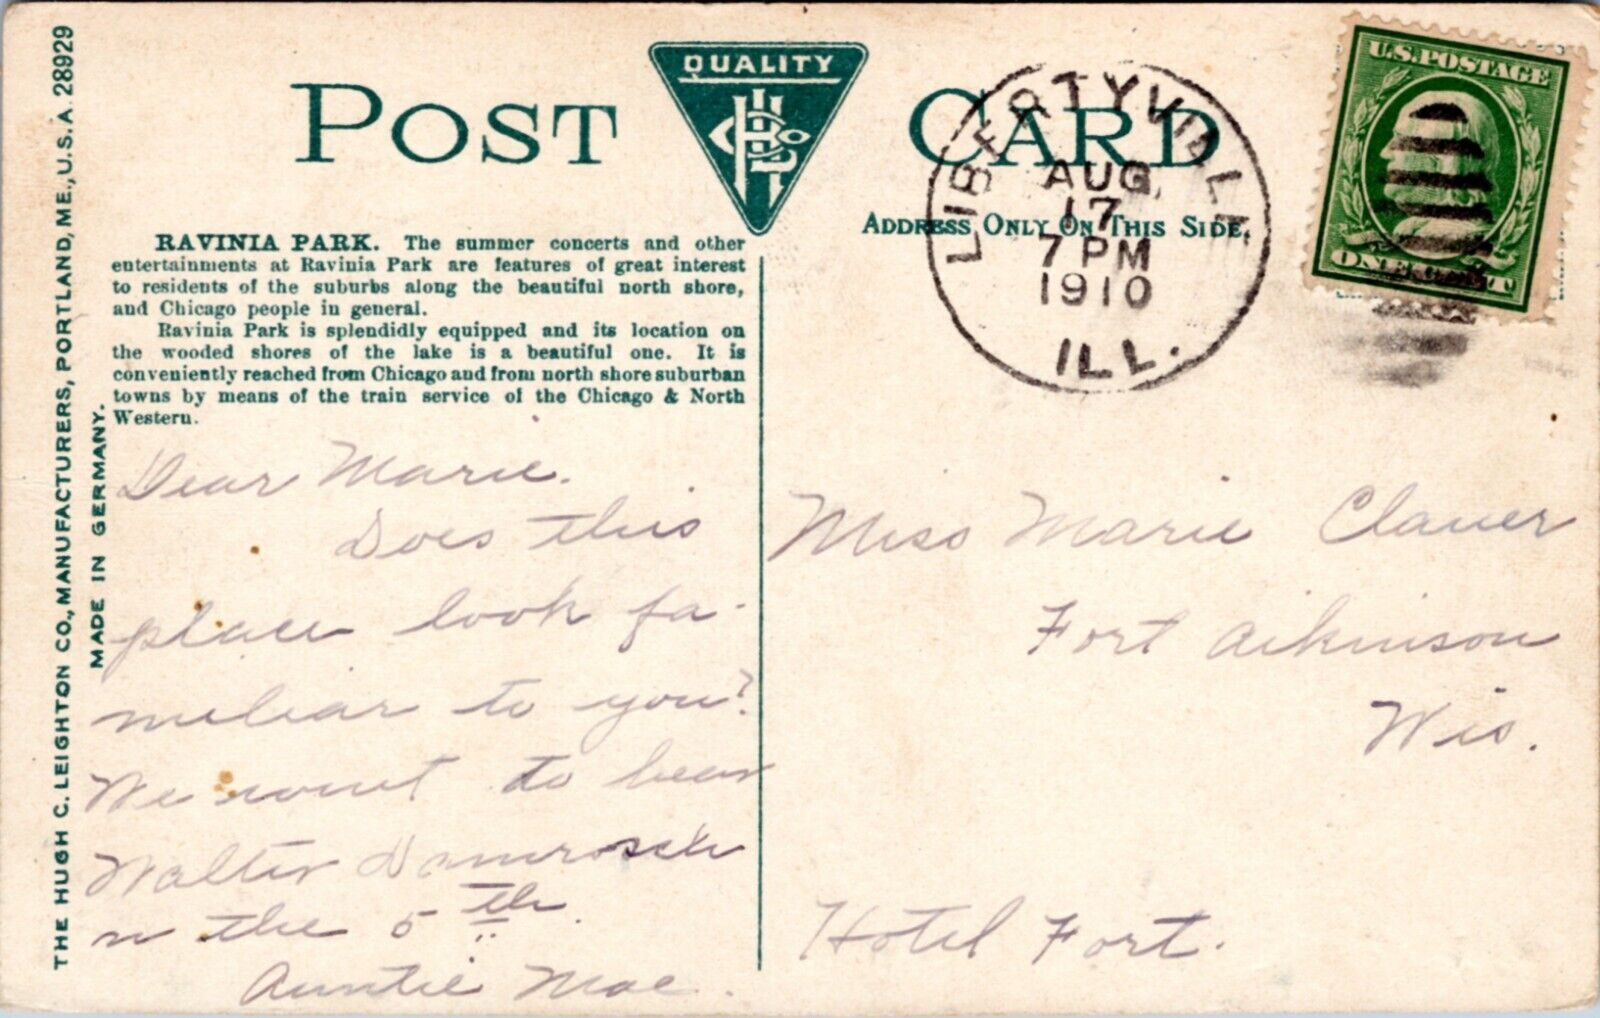 THE HUGH C. LEIGHTON CO., MANUFACTURERS, PORTLAND, ME., U.S.A. 28929
MADE IN GERMANY.
POST CARD
QUALITY
ADDRESS ONLY ON THIS SIDE.
LIBERTYVILLE
AUG.
17
7 PM
1910
ILL.
U.S. POSTAGE
ONE CENT
RAVINIA PARK. The summer concerts and other
entertainments at Ravinia Park are features of great interest
to residents of the suburbs along the beautiful north shore,
and Chicago people in general.
Ravinia Park is splendidly equipped and its location on
the wooded shores of the lake is a beautiful one. It is
conveniently reached from Chicago and from north shore suburban
towns by means of the train service of the Chicago & North
Western.
Dear Marie.
Does this
place look fa-
miliar to you?
We went to hear
Walter Damrosch
on the 5th.
Auntie Mae.
Miss Marie Clauer
Fort Atkinson
Wis.
Hotel Fort.